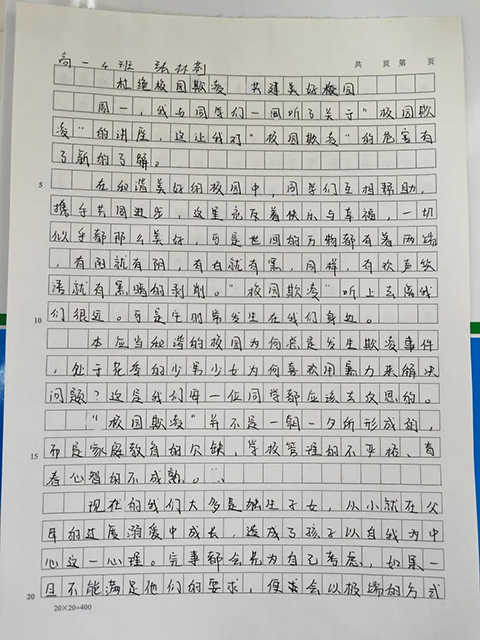 高一4班 张
共 页 第 页
杜绝校园欺凌 共建美好校园
周一,我与同学们一同听了关于"校园欺
凌"的讲座,这让我对"校园欺凌"的危害有
了新的了解。
5 在和谐美好的校园中,同学们互相帮助,
携手共同进步,这里充斥着快乐与幸福,一切
似乎都那么美好,可是世间的万物都有着两端
,有阳就有阴,有白就有黑,同样,有欢声笑
语就有黑暗的剥削。"校园欺凌"听上去离我
10 们很远。可是它时常发生在我们身边。
本应当和谐的校园为何总是发生欺凌事件
,处于花季的少男少女为何喜欢用暴力来解决
问题?这是我们每一位同学都应该去反思的。
"校园欺凌"并不是一朝一夕所形成的,
15 而是家庭教育的欠缺,学校管理的不严格、青
春心智的不成熟。
现在的我们大多是独生子女,从小就在父
母的过度溺爱中成长,造成了孩子以自我为中
心这一心理。凡事都会先为自己考虑,如果一
20 旦不能满足他们的要求,便会以极端的方式
20×20=400